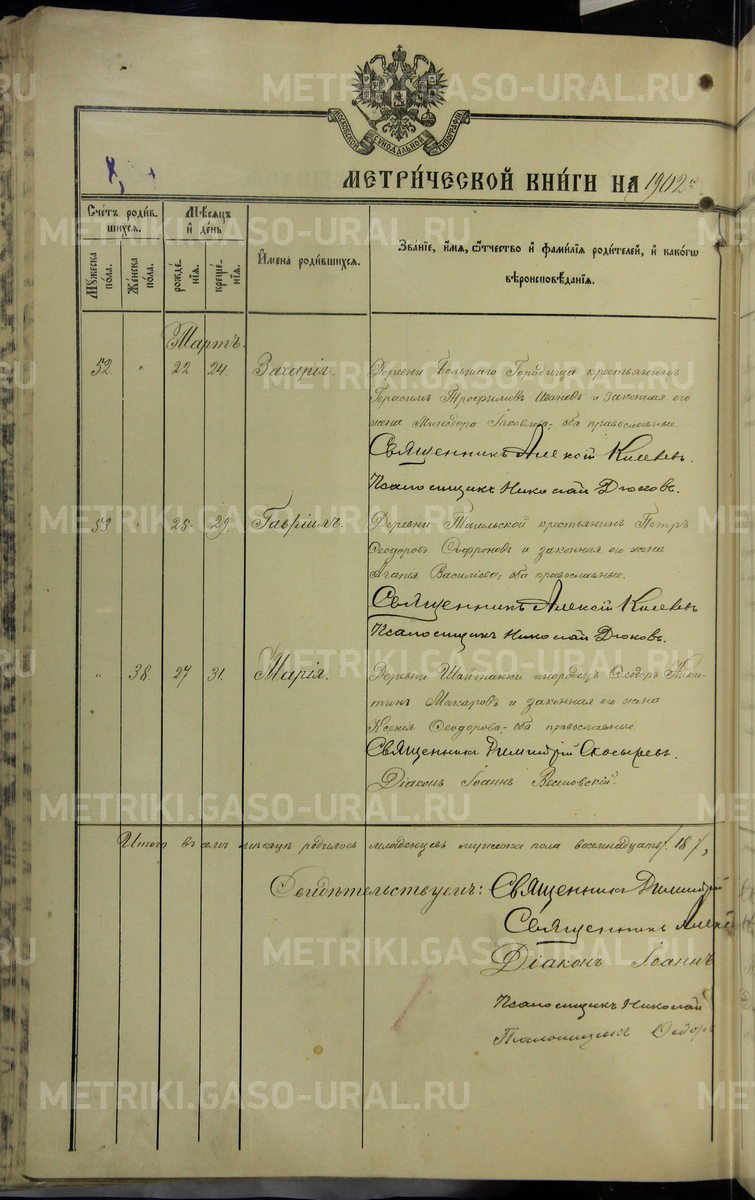 METRIKI.GASO-URAL.RU
МОСКОВСКОЙ СУНОДАЛЬНОЙ ТИПОГРАФІИ
МЕТРИ́ЧЕСКОЙ КНИ́ГИ НА 1902
Сче́тъ роди́в-
шихся.
Мѣсяцъ
и҆ де́нь
Му́жеска по́ла.
Же́нска по́ла.
рожде́-нїя.
креще́-нїя.
И҆мена роди́вшихся.
Зва́нїе, и҆́мя, ѻ҆́тчество и҆ фами́лїя роди́телей, и҆ како́гѡ
вѣроисповѣ́данїя.
Мартъ.
52. " 22 24 Захарія. Деревни крестьянинъ
Герасимъ Трофимовъ Ивановъ и законная его
жена Минодора Іаковлева, оба православные.
Священникъ Алексій
Псаломщикъ Николай Дюковъ.
53 " 25 29. Гавріилъ. Деревни Тагильской крестьянинъ Петръ
Ѳеодоровъ Софроновъ и законная его жена
Агапія Васильева, оба православные.
Священникъ Алексій
Псаломщикъ Николай Дюковъ.
" 38. 27 31. Марія. Деревни Шайтанки инородецъ Ѳеодоръ Ники-
тинъ Макаровъ и законная его жена
Ксенія Ѳеодорова, оба православные.
Священникъ Димитрій Скосыревъ.
Діаконъ Іоаннъ
Итого въ семъ мѣсяцѣ родилось младенцевъ мужеска пола восемнадцать /18/,
Свидѣтельствуемъ: Священникъ Димитрій
Священникъ Алексі
Діаконъ Іоаннъ
Псаломщикъ Николай
Псаломщикъ Ѳедоръ